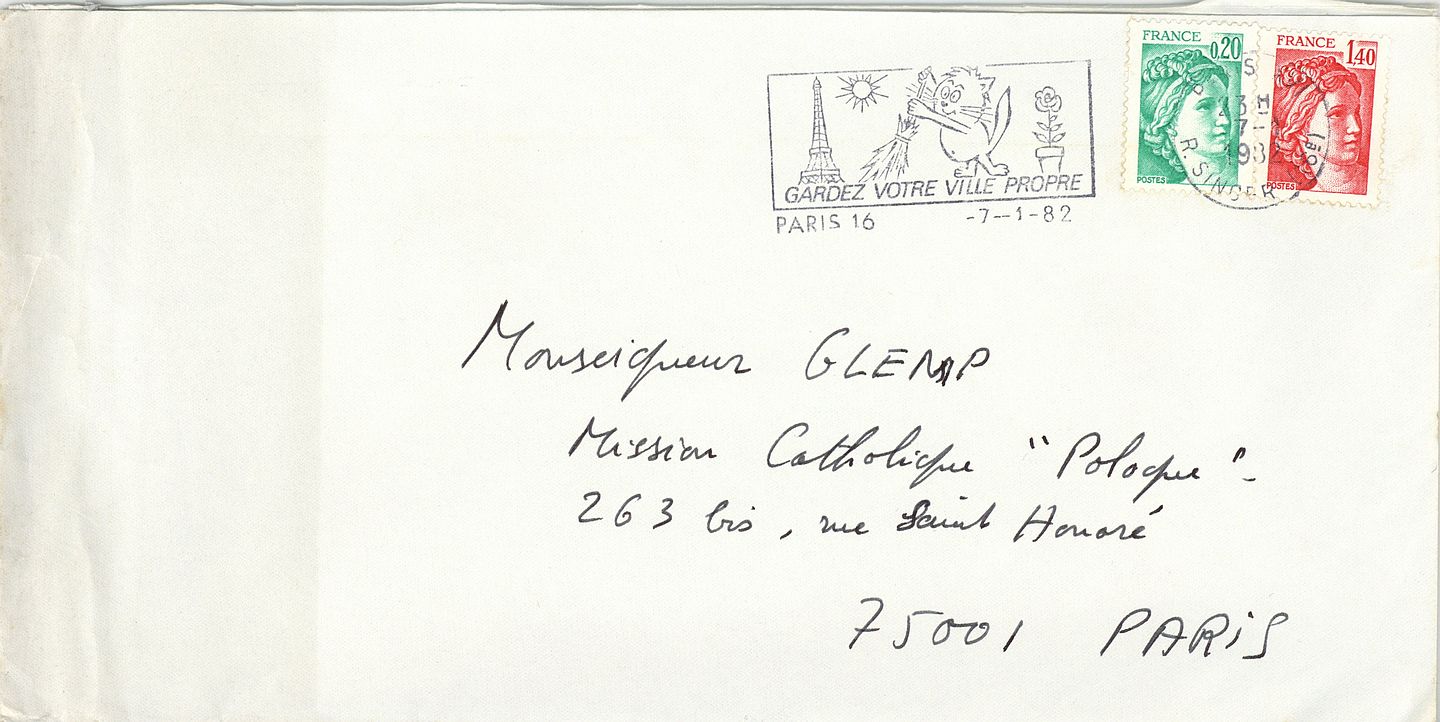 FRANCE 0,20
POSTES
FRANCE 1,40
POSTES
13 H
7-1
1982
R. SINGER (16e)
GARDEZ VOTRE VILLE PROPRE
PARIS 16 -7--1-82
Monseigneur GLEMP
Mission Catholique "Pologne"-
263 bis, rue Saint Honoré
75001 PARiS